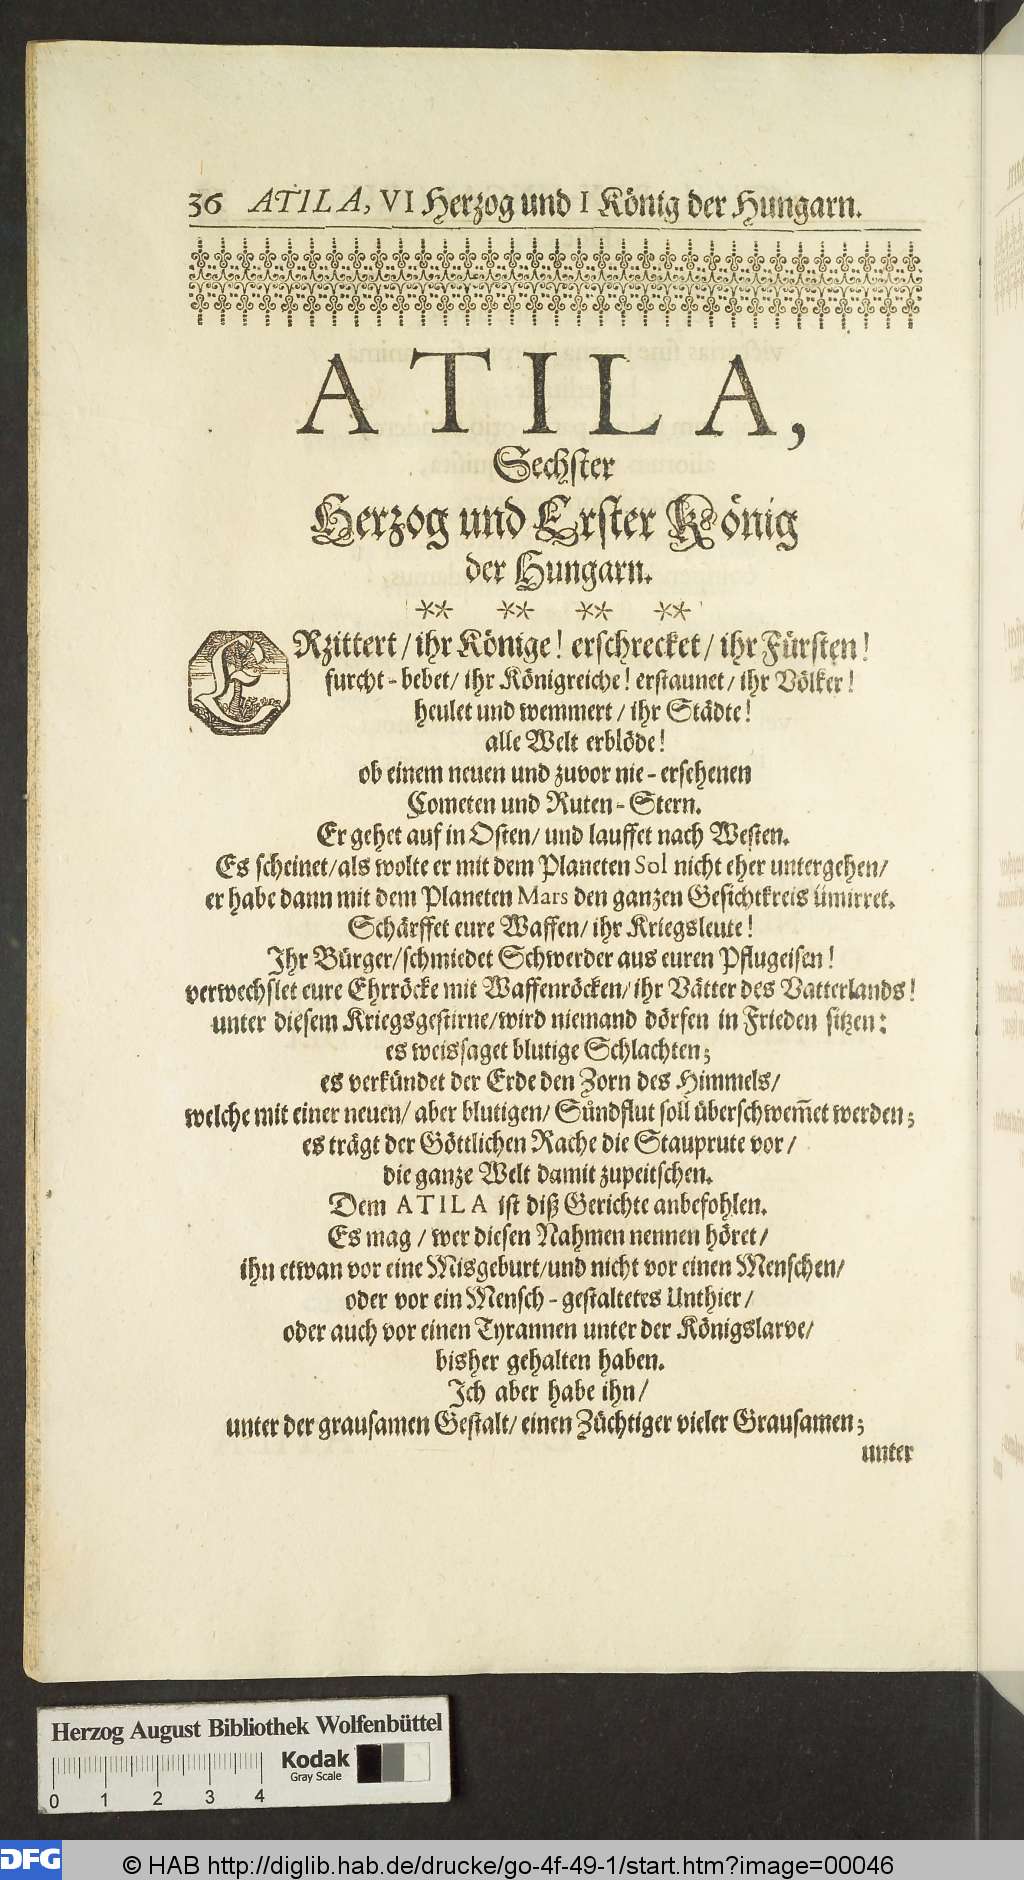 36 ATILA, VI Herzog und I König der Hungarn.
ATILA,
Sechster
Herzog und Erster König
der Hungarn.
** ** ** **
ERzittert / ihr Könige! erschrecket / ihr Fürsten!
furcht-bebet / ihr Königreiche! erstaunet / ihr Völker!
heulet und wemmert / ihr Städte!
alle Welt erblöde!
ob einem neuen und zuvor nie-ersehenen
Cometen und Ruten-Stern.
Er gehet auf in Osten / und lauffet nach Westen.
Es scheinet / als wolte er mit dem Planeten Sol nicht eher untergehen /
er habe dann mit dem Planeten Mars den ganzen Gesichtkreis ümirret.
Schärffet eure Waffen / ihr Kriegsleute!
Ihr Bürger / schmiedet Schwerder aus euren Pflugeisen!
verwechslet eure Ehrröcke mit Waffenröcken / ihr Vätter des Vatterlands!
unter diesem Kriegsgestirne / wird niemand dörfen in Frieden sitzen:
es weissaget blutige Schlachten;
es verkündet der Erde den Zorn des Himmels /
welche mit einer neuen / aber blutigen / Sündflut soll überschwem̃et werden;
es trägt der Göttlichen Rache die Stauprute vor /
die ganze Welt damit zupeitschen.
Dem ATILA ist diß Gerichte anbefohlen.
Es mag / wer diesen Nahmen nennen höret /
ihn etwan vor eine Misgeburt / und nicht vor einen Menschen /
oder vor ein Mensch-gestaltetes Unthier /
oder auch vor einen Tyrannen unter der Königslarve /
bisher gehalten haben.
Ich aber habe ihn /
unter der grausamen Gestalt / einen Züchtiger vieler Grausamen;
unter
Herzog August Bibliothek Wolfenbüttel
Kodak
Gray Scale
0 1 2 3 4
DFG
© HAB http://diglib.hab.de/drucke/go-4f-49-1/start.htm?image=00046